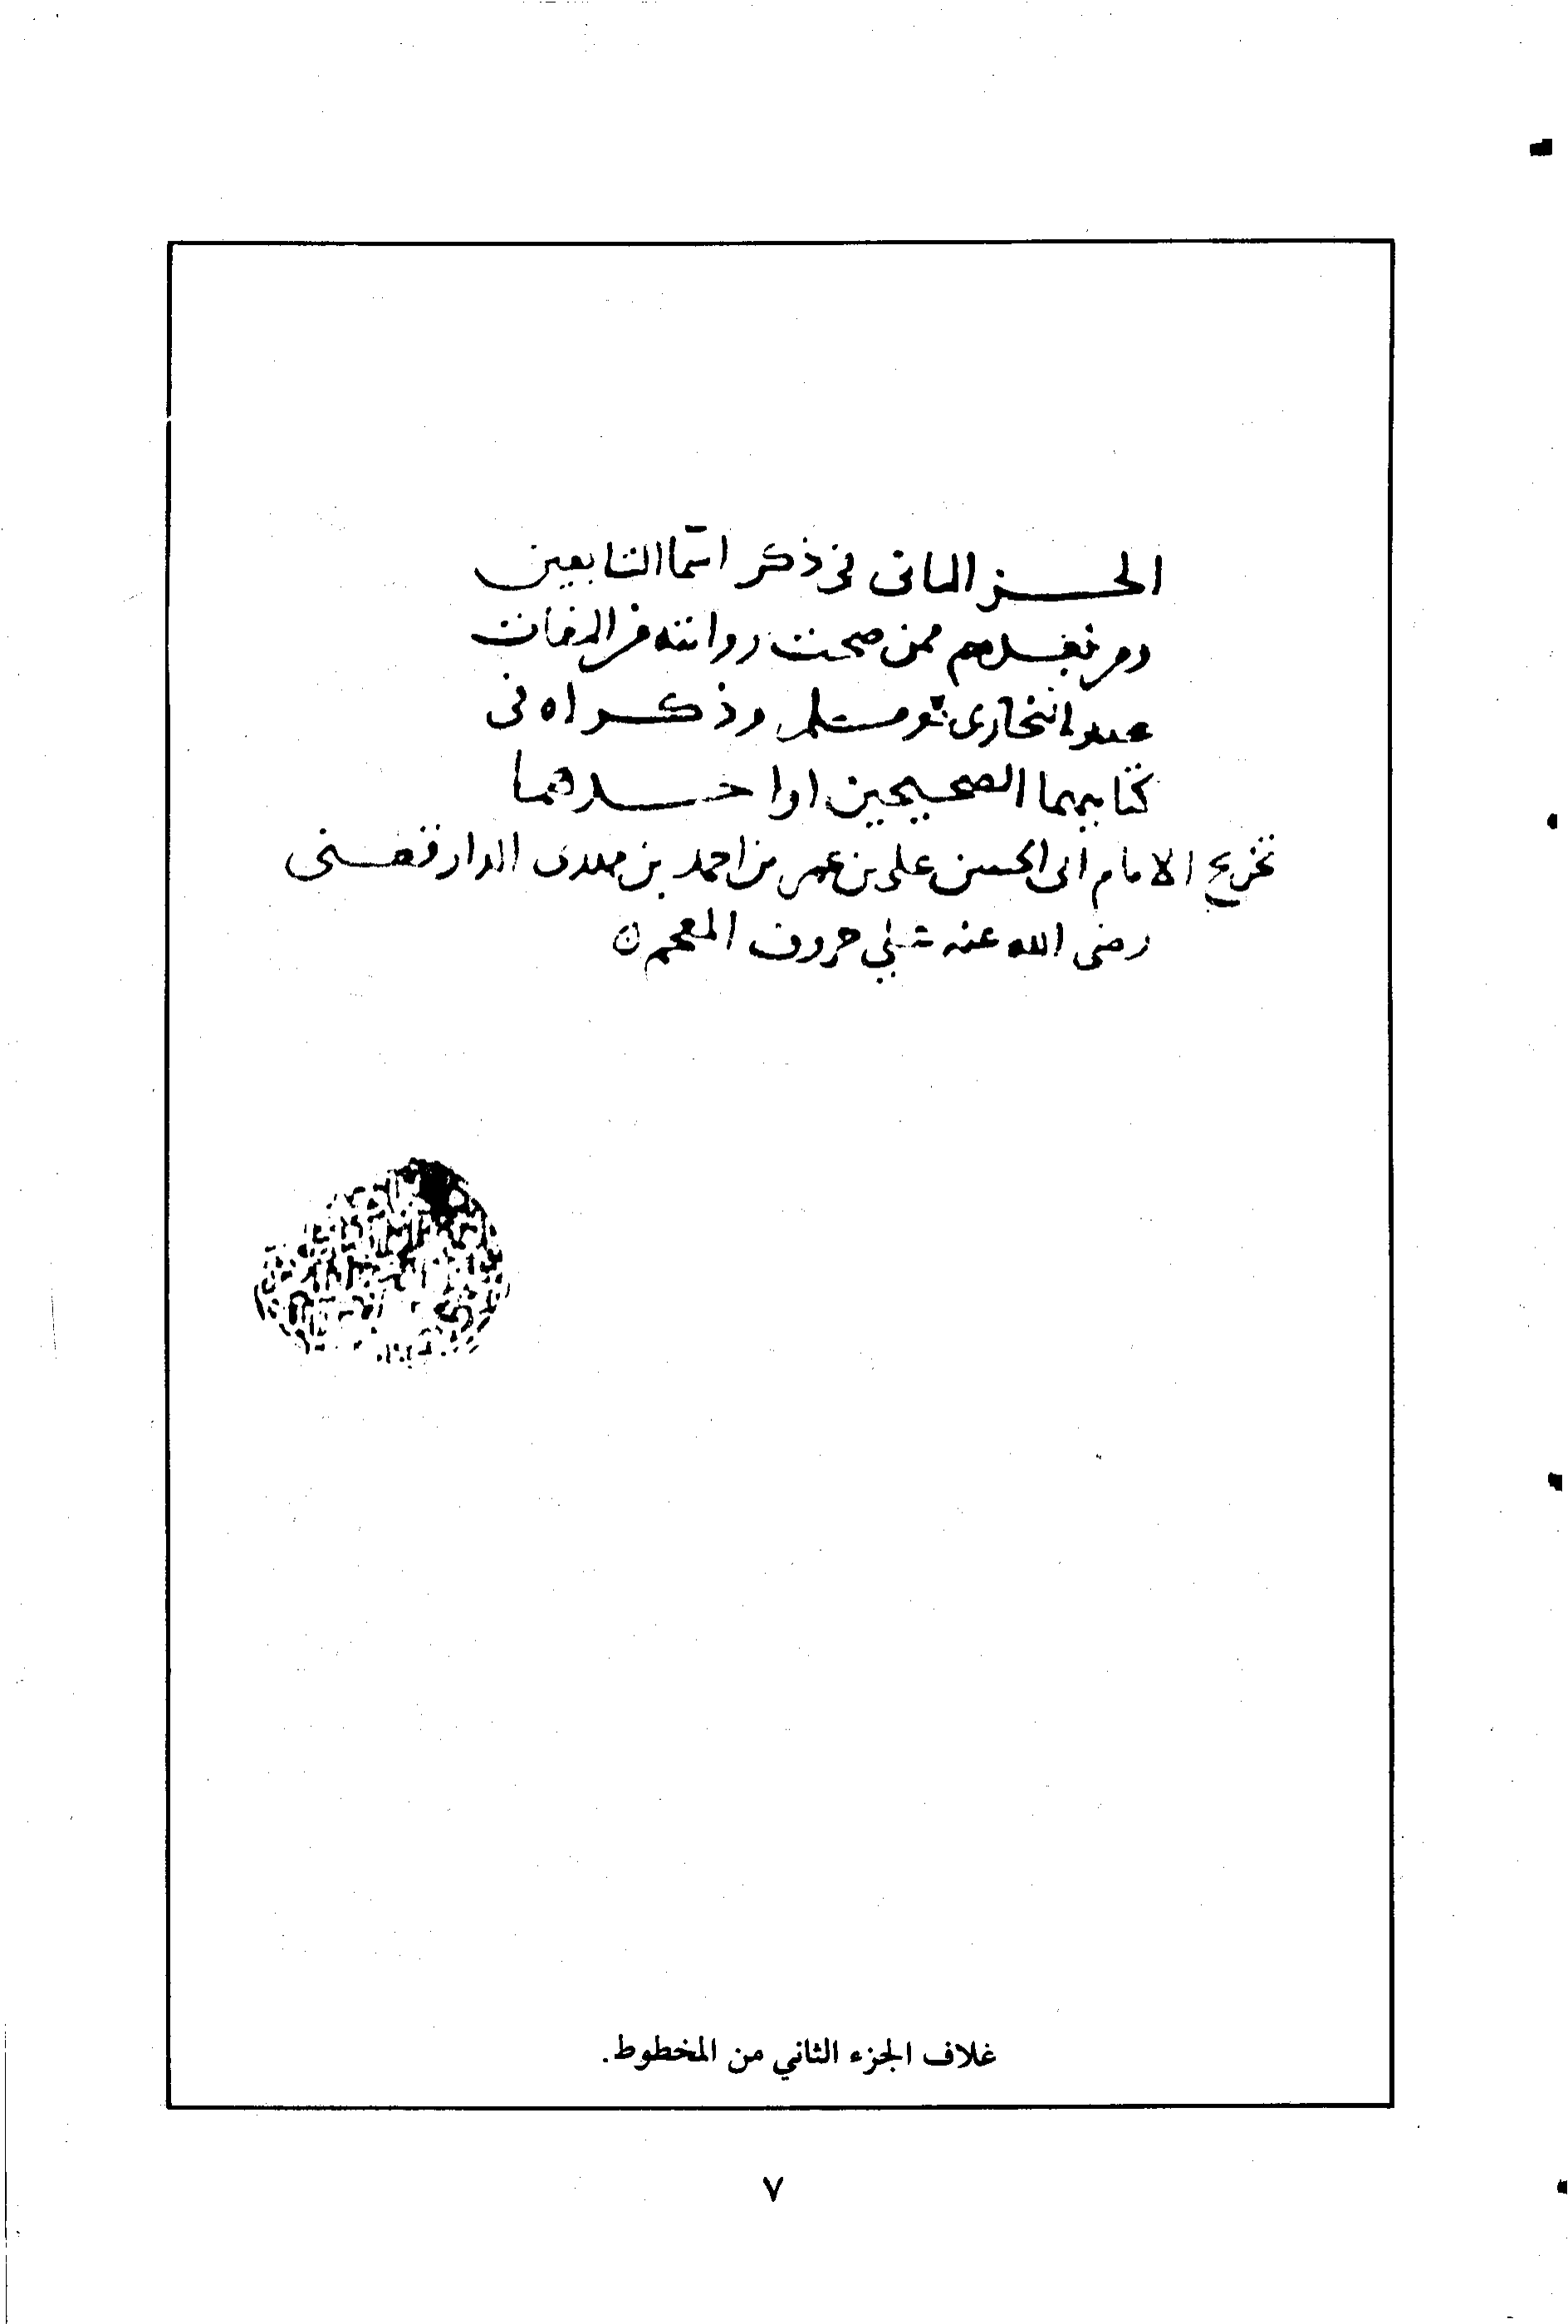 الجز الثانى فى ذكر اسما التابعين
ومن بعدهم ممن صحت روايته من الثقات
عند البخارى و مسلم وذكراه فى
كتابيهما الصحيحين او احدهما
تخريج الامام ابى الحسن على بن عمر بن احمد بن مهدى الدارقطنى
رضى الله عنه على حروف المعجم
غلاف الجزء الثاني من المخطوط.
٧